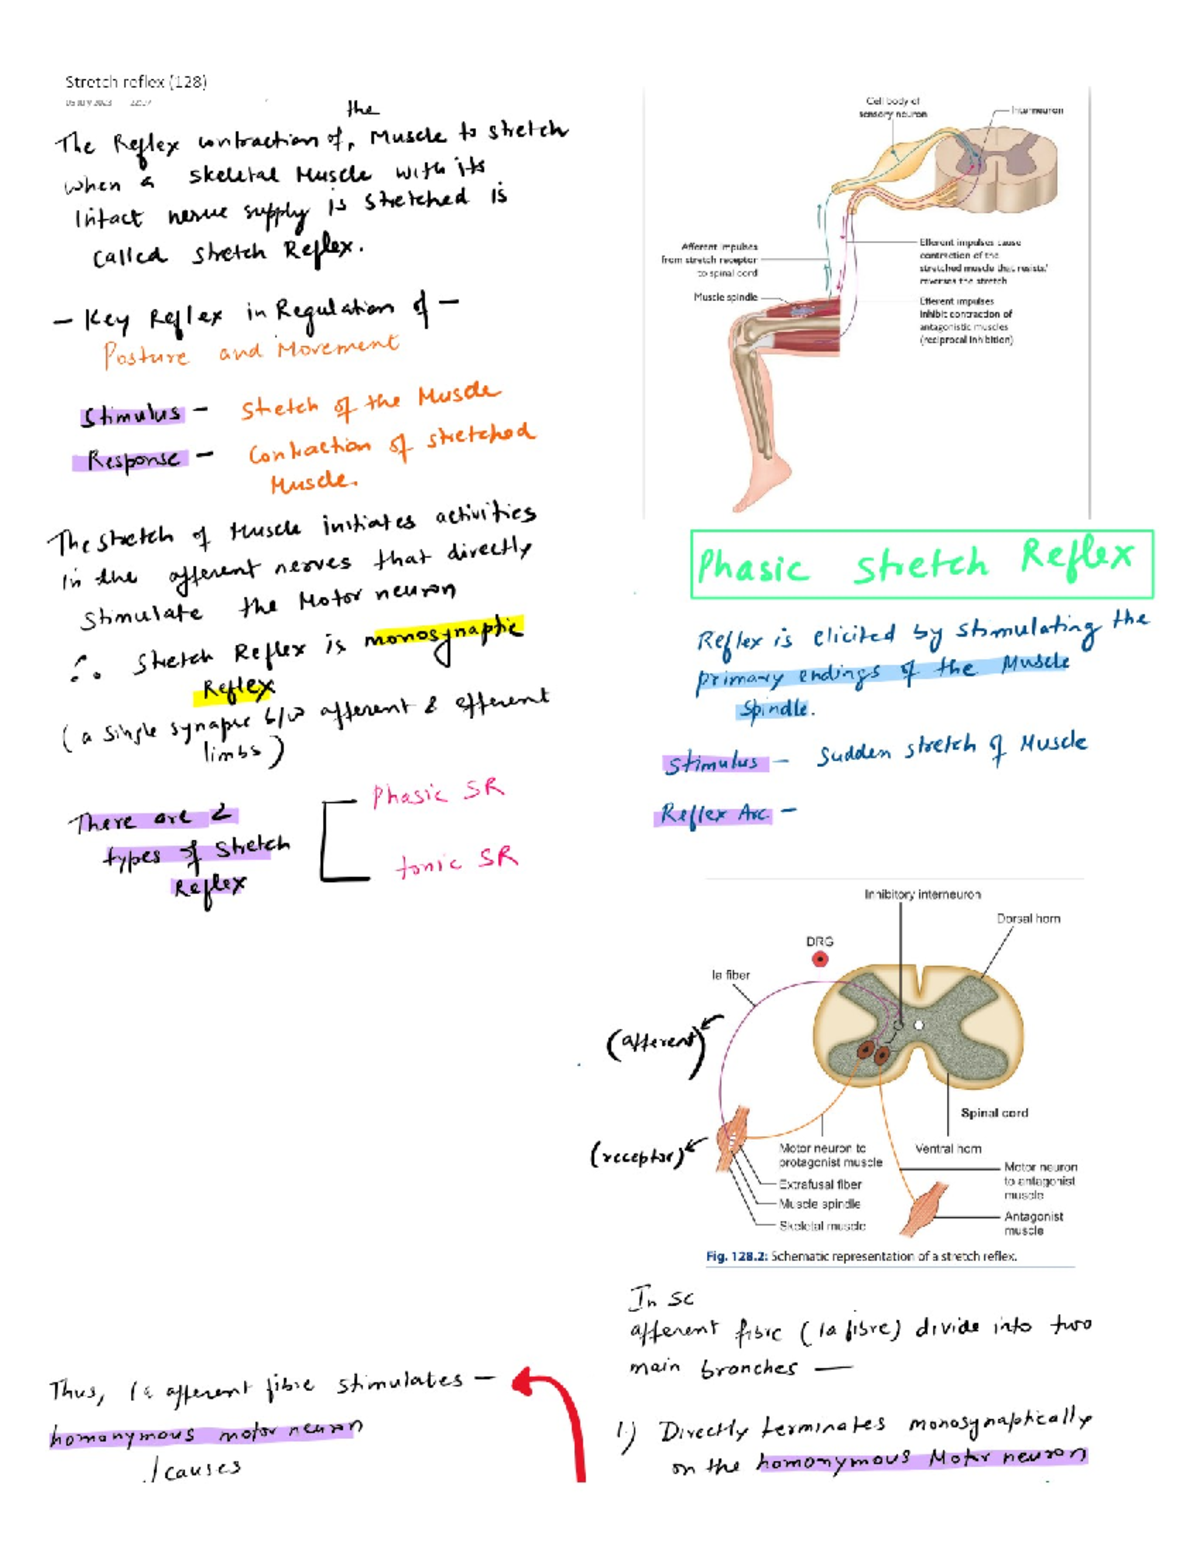 Stretch reflex (128)
the
The Reflex contraction of, Muscle to stretch
when a skeletal Muscle with its
Intact nerve supply is stretched is
called stretch Reflex.
- Key Reflex in Regulation of -
Posture and Movement
Stimulus - Stretch of the Muscle
Response - Contraction of stretched
Muscle.
The stretch of Muscle initiates activities
in the afferent nerves that directly
stimulate the Motor neuron
∴ Stretch Reflex is monosynaptic
Reflex
(a single synapse b/w afferent & efferent
limbs)
There are 2
types of Stretch
Reflex
Phasic SR
tonic SR
Thus, Ia afferent fibre stimulates -
homonymous motor neuron
causes
Cell body of
sensory neuron
Interneuron
Afferent impulses
from stretch receptor
to spinal cord
Efferent impulses cause
contraction of the
stretched muscle that resists/
reverses the stretch
Muscle spindle
Efferent impulses
inhibit contraction of
antagonistic muscles
(reciprocal inhibition)
Phasic stretch Reflex
Reflex is elicited by stimulating the
primary endings of the Muscle
Spindle.
Stimulus - Sudden stretch of Muscle
Reflex Arc -
Inhibitory interneuron
Dorsal horn
DRG
Ia fiber
(afferent)
Spinal cord
(receptor)
Motor neuron to
protagonist muscle
Ventral horn
Extrafusal fiber
Muscle spindle
Skeletal muscle
Motor neuron
to antagonist
muscle
Antagonist
muscle
Fig. 128.2: Schematic representation of a stretch reflex.
In SC
afferent fibre (Ia fibre) divide into two
main branches -
1.) Directly terminates monosynaptically
on the homonymous Motor neuron